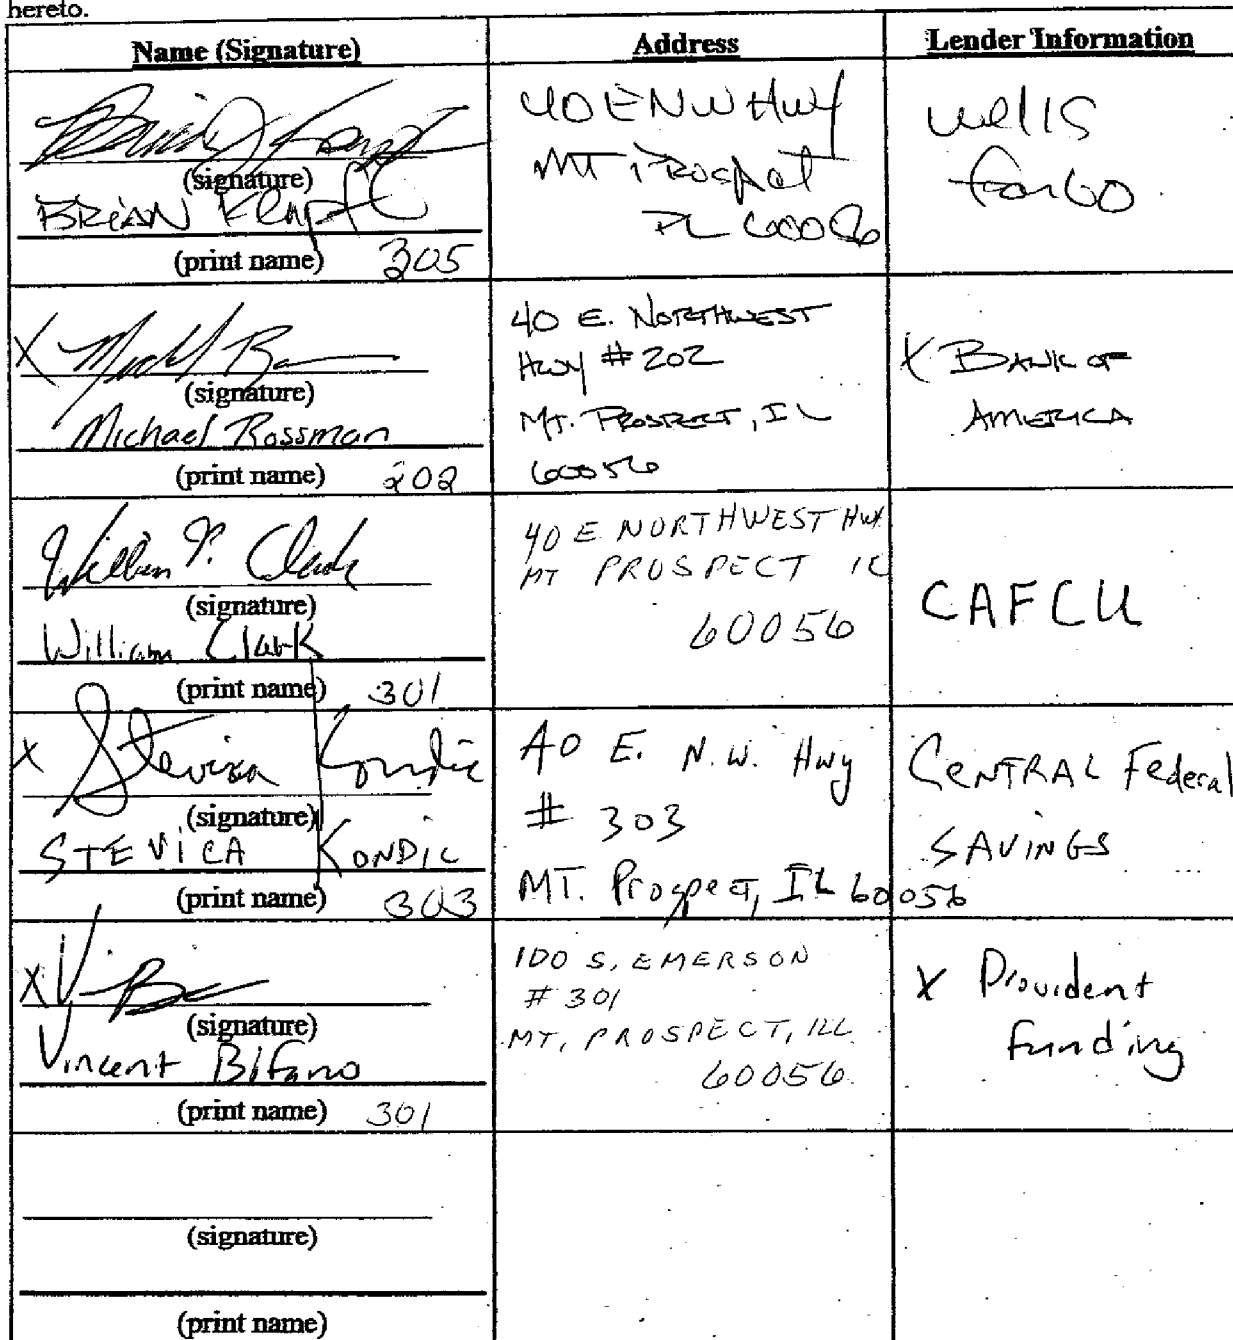 hereto.
Name (Signature) Address Lender Information
40 E NW Hwy
Mt Prospect
IL 60056
Wells
Fargo
(signature)
BRIAN
(print name) 305
X
(signature)
Michael Rossman
(print name) 202
40 E. NORTHWEST
Hwy # 202
MT. PROSPECT, IL
60056
X BANK OF
AMERICA
William P. Clark
(signature)
William Clark
(print name) 301
40 E NORTHWEST HWY
MT PROSPECT IL
60056
CAFCU
X Stevica Kondic
(signature)
STEVICA KONDIC
(print name) 303
40 E. N.W. Hwy
# 303
MT. Prospect, IL 60056
CENTRAL Federal
SAVINGS
X
(signature)
Vincent Bifano
(print name) 301
100 S. EMERSON
# 301
MT. PROSPECT, ILL
60056
X Provident
Funding
(signature)
(print name)